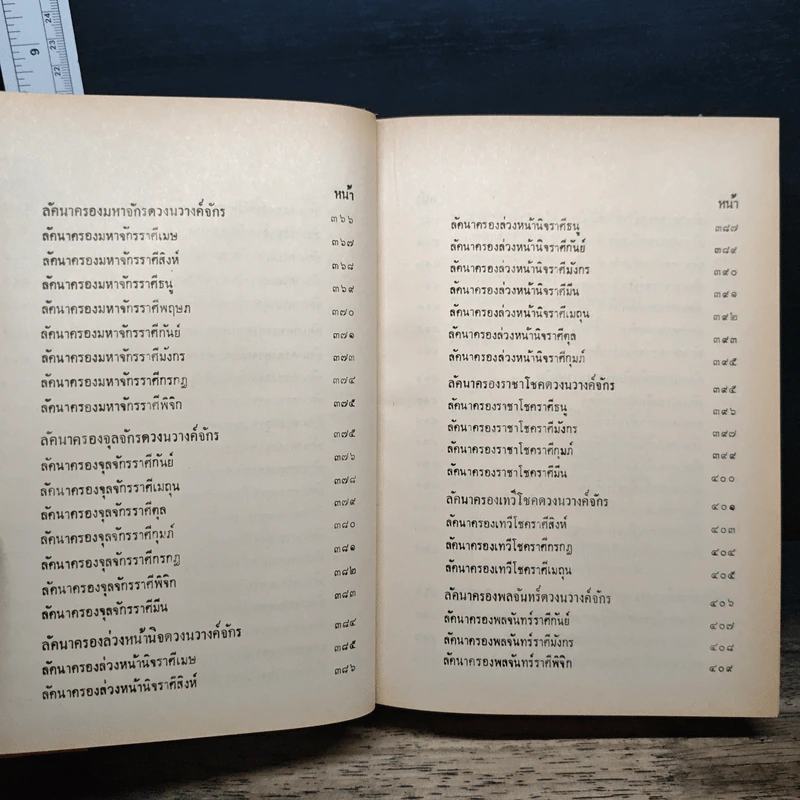 24
9
23
22
หน้า
ลัคนาครองมหาจักรดวงนวางค์จักร ๓๖๖
ลัคนาครองมหาจักรราศีเมษ ๓๖๗
ลัคนาครองมหาจักรราศีสิงห์ ๓๖๘
ลัคนาครองมหาจักรราศีธนู ๓๖๙
ลัคนาครองมหาจักรราศีพฤษภ ๓๗๐
ลัคนาครองมหาจักรราศีกันย์ ๓๗๑
ลัคนาครองมหาจักรราศีมังกร ๓๗๓
ลัคนาครองมหาจักรราศีกรกฎ ๓๗๔
ลัคนาครองมหาจักรราศีพิจิก ๓๗๕
ลัคนาครองจุลจักรดวงนวางค์จักร ๓๗๕
ลัคนาครองจุลจักรราศีกันย์ ๓๗๖
ลัคนาครองจุลจักรราศีเมถุน ๓๗๘
ลัคนาครองจุลจักรราศีตุล ๓๗๙
ลัคนาครองจุลจักรราศีกุมภ์ ๓๘๐
ลัคนาครองจุลจักรราศีกรกฎ ๓๘๑
ลัคนาครองจุลจักรราศีพิจิก ๓๘๒
ลัคนาครองจุลจักรราศีมีน ๓๘๓
ลัคนาครองล่วงหน้านิจดวงนวางค์จักร ๓๘๔
ลัคนาครองล่วงหน้านิจราศีเมษ ๓๘๕
ลัคนาครองล่วงหน้านิจราศีสิงห์ ๓๘๖
หน้า
ลัคนาครองล่วงหน้านิจราศีธนู ๓๘๗
ลัคนาครองล่วงหน้านิจราศีกันย์ ๓๘๙
ลัคนาครองล่วงหน้านิจราศีมังกร ๓๙๐
ลัคนาครองล่วงหน้านิจราศีมีน ๓๙๑
ลัคนาครองล่วงหน้านิจราศีเมถุน ๓๙๒
ลัคนาครองล่วงหน้านิจราศีตุล ๓๙๓
ลัคนาครองล่วงหน้านิจราศีกุมภ์ ๓๙๕
ลัคนาครองราชาโชคดวงนวางค์จักร ๓๙๕
ลัคนาครองราชาโชคราศีธนู ๓๙๖
ลัคนาครองราชาโชคราศีมังกร ๓๙๗
ลัคนาครองราชาโชคราศีกุมภ์ ๓๙๙
ลัคนาครองราชาโชคราศีมีน ๔๐๐
ลัคนาครองเทวีโชคดวงนวางค์จักร ๔๐๑
ลัคนาครองเทวีโชคราศีสิงห์ ๔๐๓
ลัคนาครองเทวีโชคราศีกรกฎ ๔๐๔
ลัคนาครองเทวีโชคราศีเมถุน ๔๐๕
ลัคนาครองพลจันทร์ดวงนวางค์จักร ๔๐๖
ลัคนาครองพลจันทร์ราศีกันย์ ๔๐๗
ลัคนาครองพลจันทร์ราศีมังกร ๔๐๘
ลัคนาครองพลจันทร์ราศีพิจิก ๔๐๙